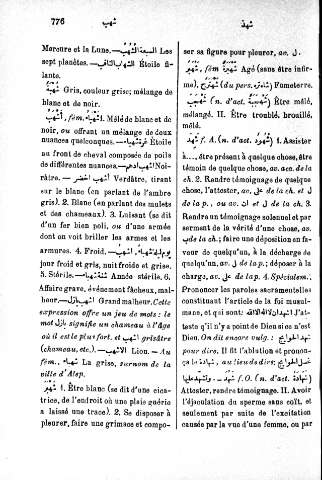 776
شهب
شهد
Mercure et la Lune. — السبعة الشهب Les
sept planètes. — الشهاب الثاقب Étoile fi-
lante.
شهبة Gris, couleur grise; mélange de
blanc et de noir.
أشهب, fém. شهباء 1. Mêlé de blanc et de
noir, ou offrant un mélange de deux
nuances quelconques. — Étoile
au front de cheval composée de poils
de différentes nuances. — Noi-
râtre. — أشهب أخضر Verdâtre, tirant
sur le blanc (en parlant de l'ambre
gris). 2. Blanc (en parlant des mulets
et des chameaux). 3. Luisant (se dit
d'un fer bien poli, ou d'une armée
dont on voit briller les armes et les
armures. 4. Froid. — يوم أشهب
jour froid et gris, nuit froide et grise.
5. Stérile. — سنة شهباء Année stérile. 6.
Affaire grave, événement fâcheux, mal-
heur. — أشهب بازل Grand malheur. Cette
expression offre un jeu de mots: le
mot بازل signifie un chameau à l'âge
où il est plus fort, et أشهب grisâtre
(chameau, etc.). — الأشهب Lion. — Au
fém., شهباء La grise, surnom de la
ville d'Alep.
1. Être blanc (se dit d'une cica-
trice, de l'endroit où une plaie guérie
a laissé une trace). 2. Se disposer à
pleurer, faire une grimace et compo-
ser sa figure pour pleurer, av. ل.
fém. شهبرة Agé (sans être infir-
me). (du pers. ) Fumeterre.
(n. d'act. ) Être mêlé,
mélangé. II. Être troublé, brouillé,
mêlé.
شهد f. A. (n. d'act. شهود) 1. Assister
à..., être présent à quelque chose, être
témoin de quelque chose, av. acc. de la
ch. 2. Rendre témoignage de quelque
chose, l'attester, av. على de la ch. et ل
de la p., ou av. ان et ل de la ch. 3.
Rendre un témoignage solennel et par
serment de la vérité d'une chose, av.
ب de la ch.; faire une déposition en fa-
veur de quelqu'un, à la décharge de
quelqu'un, av. ل de la p.; déposer à la
charge, av. على de la p. 4. Spécialem.:
Prononcer les paroles sacramentelles
constituant l'article de la foi musul-
mane, et qui sont: أشهد أن لا إله إلا الله J'at-
teste qu'il n'y a point de Dieu si ce n'est
Dieu. On dit encore vulg.:
pour dire: Il fit l'ablution et pronon-
ça la شهادة, au lieu de dire:
f. O. (n. d'act. شهادة)
Attester, rendre témoignage. II. Avoir
l'éjaculation du sperme sans coït, et
seulement par suite de l'excitation
causée par la vue d'une femme, ou par